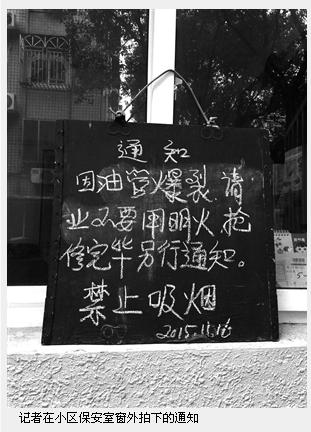 通知
因油管爆裂.请
业不要用明火,抢
修完毕另行通知。
禁止吸烟
2015.11.16
记者在小区保安室窗外拍下的通知